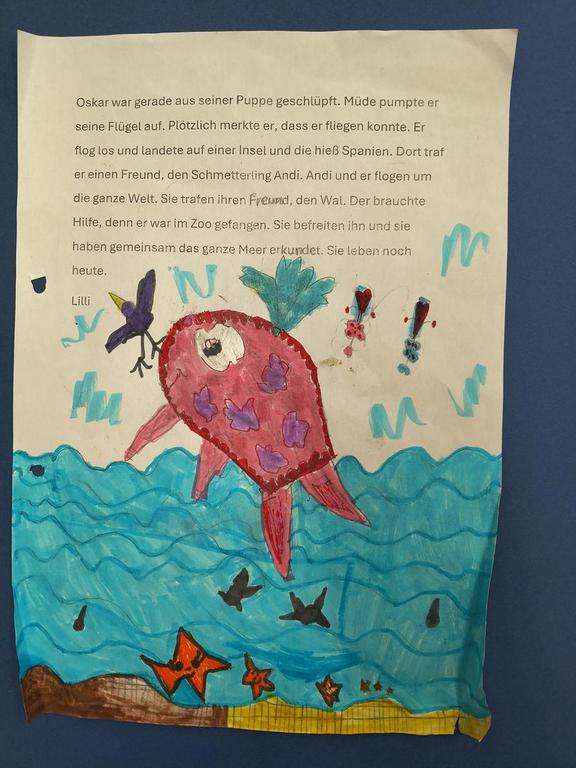 Oskar war gerade aus seiner Puppe geschlüpft. Müde pumpte er
seine Flügel auf. Plötzlich merkte er, dass er fliegen konnte. Er
flog los und landete auf einer Insel und die hieß Spanien. Dort traf
er einen Freund, den Schmetterling Andi. Andi und er flogen um
die ganze Welt. Sie trafen ihren Freund, den Wal. Der brauchte
Hilfe, denn er war im Zoo gefangen. Sie befreiten ihn und sie
haben gemeinsam das ganze Meer erkundet. Sie leben noch
heute.
Lilli